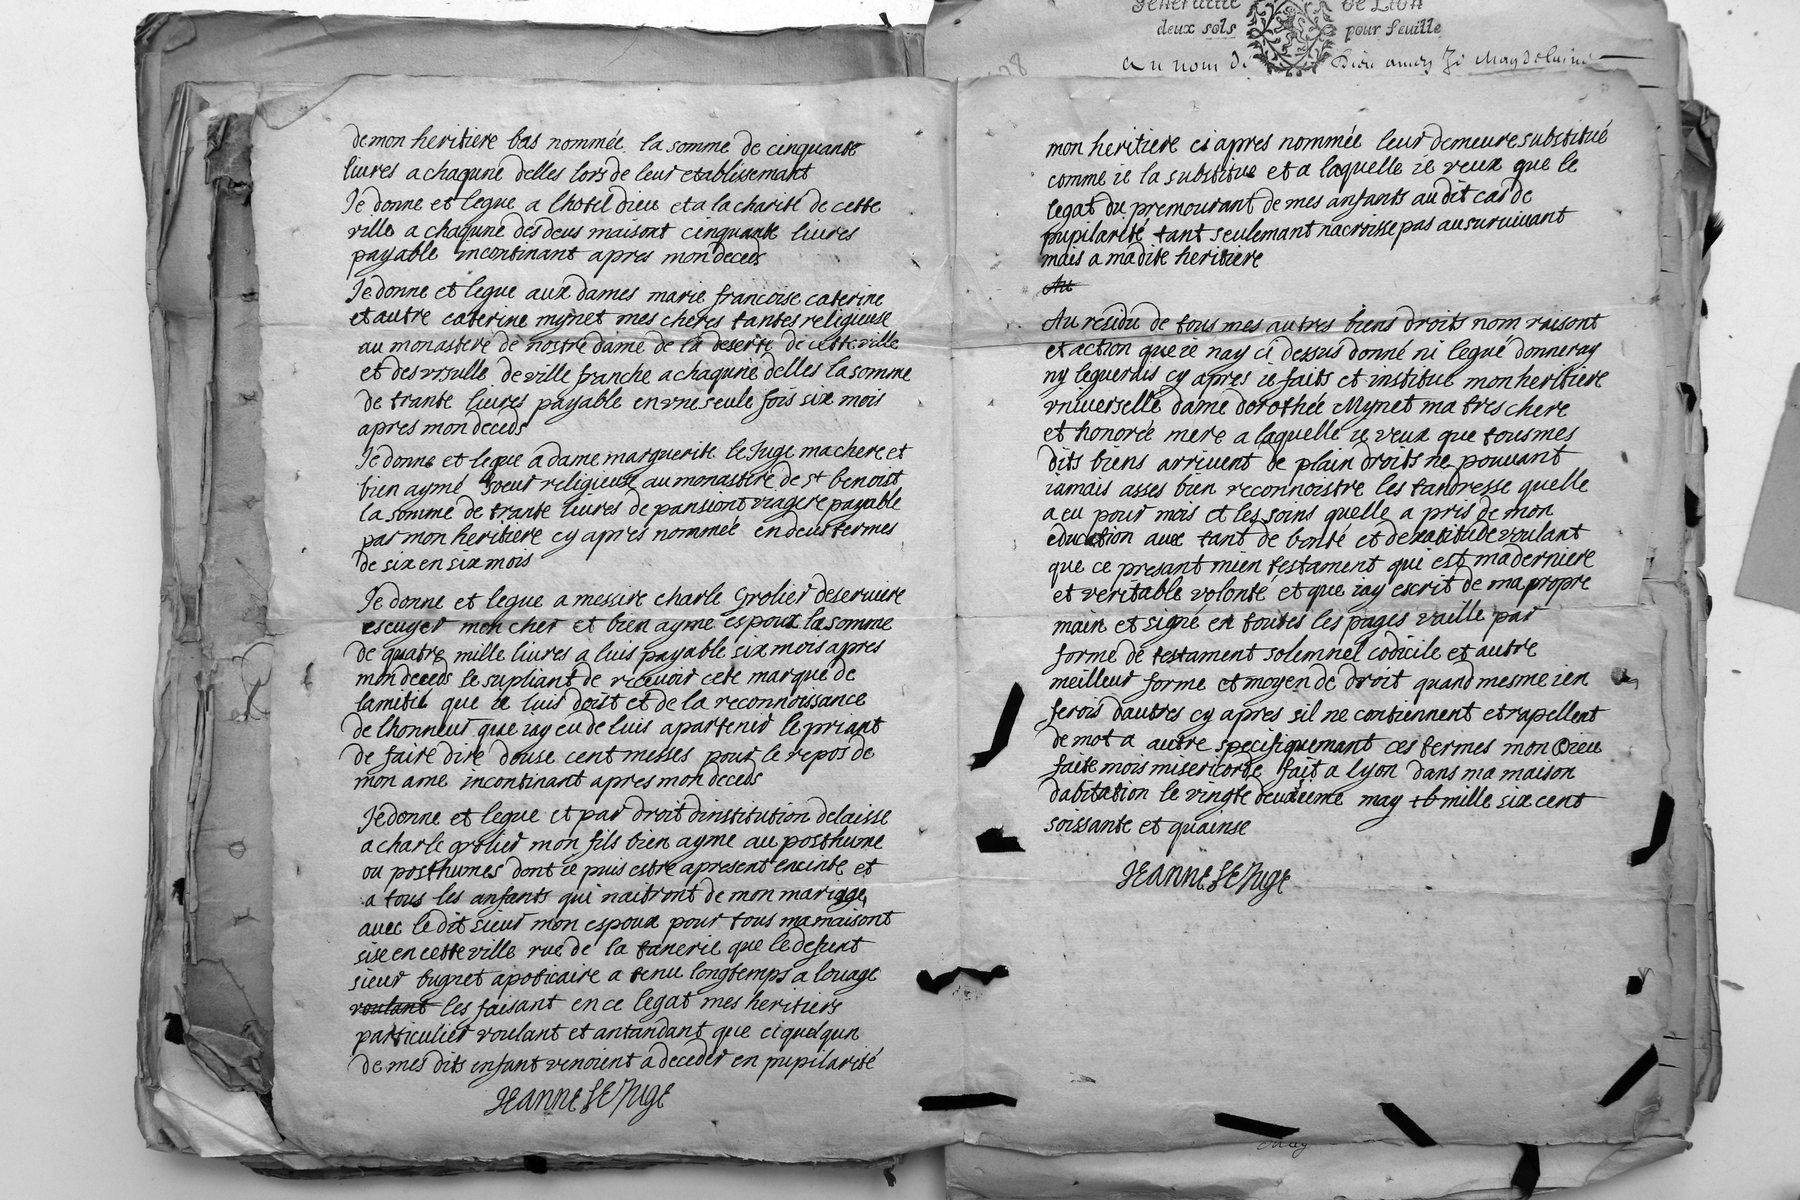 de mon heritiere bas nommée la somme de cinquante
livres a chaqune delles lors de leur etablissemant
Je donne et legue a lhotel dieu et a la charité de cette
ville a chaqune des deus maisont cinquante livres
payable incontinant apres mon deceds
Je donne et legue aux dames marie francoise caterine
et autre caterine mynet mes cheres tantes religieuse
au monastere de nostre dame de la deserte de cette ville
et des vrsulle de ville franche a chaqune delles la somme
de trante livres payable en vne seule fois six mois
apres mon deceds
Je donne et legue a dame marguerite le Juge ma chere et
bien aymé soeur religieuse au monastere de st benoist
la somme de trante livres de pansiont viagere payable
par mon heritiere cy apres nommée en deus termes
de six en six mois
Je donne et legue a messire charle Grolier deserviere
escuyer mon cher et bien aymé espoux la somme
de quatre mille livres a luis payable six mois apres
mon deceds le supliant de recevoir cete marque de
lamitié que ie luis doist et de la reconnoissance
de lhonneur que iay eu de luis apartenir le priant
de faire dire douse cent messes pour le repos de
mon ame incontinant apres mon deceds
Je donne et legue et par droit dinstitution delaisse
a charle grolier mon fils bien aymé au posthume
ou posthumes dont ie puis estre apresent enceinte et
a tous les anfants qui naitront de mon mariage
avec le dit sieur mon espoux pour tous ma maisont
sise en cette ville rue de la tanerie que le defunt
sieur bugnet apoticaire a tenu longtemps a louage
voulant les faisant en ce legat mes heritiers
particulier voulant et antandant que ci quelqun
de mes dits enfant venoient a deceder en pupilarité
JEANNE LE JUGE
Generalité de Lion
deux sols pour feuille
Au nom de Dieu amen Je Magdelaine
mon heritiere ci apres nommée leur demeure substitué
comme ie la substitue et a laquelle ie veux que le
legat du premourant de mes anfants au dit cas de
pupilarité tant seulemant nacroisse pas au survivant
mais a ma dite heritiere
Au
Au residu de tous mes autres biens droits nom raisont
et action que ie nay ci dessus donné ni legué donneray
ny leguerais cy apres ie faits et institue mon heritiere
vniverselle dame dorothée Mynet ma tres chere
et honorée mere a laquelle ie veux que tous mes
dits biens arrivent de plain droits ne pouvant
iamais asses bien reconnoistre les tandresse quelle
a eu pour mois et les soins quelle a pris de mon
education aux tant de bonté et dexatitude voulant
que ce presant mien testament qui est ma derniere
et veritable volonté et que iay escrit de ma propre
main et signé en toutes les pages vaille par
forme de testament solemnel codicile et autre
meilleur forme et moyen de droit quand mesme ien
ferois dautres cy apres sil ne contiennent et rapellent
de mot a autre specifiquemant ces termes mon Dieu
faite mois misericorde fait a lyon dans ma maison
dabitation le vingte deuxieme may mille six cent
soissante et quainse
JEANNE LE JUGE